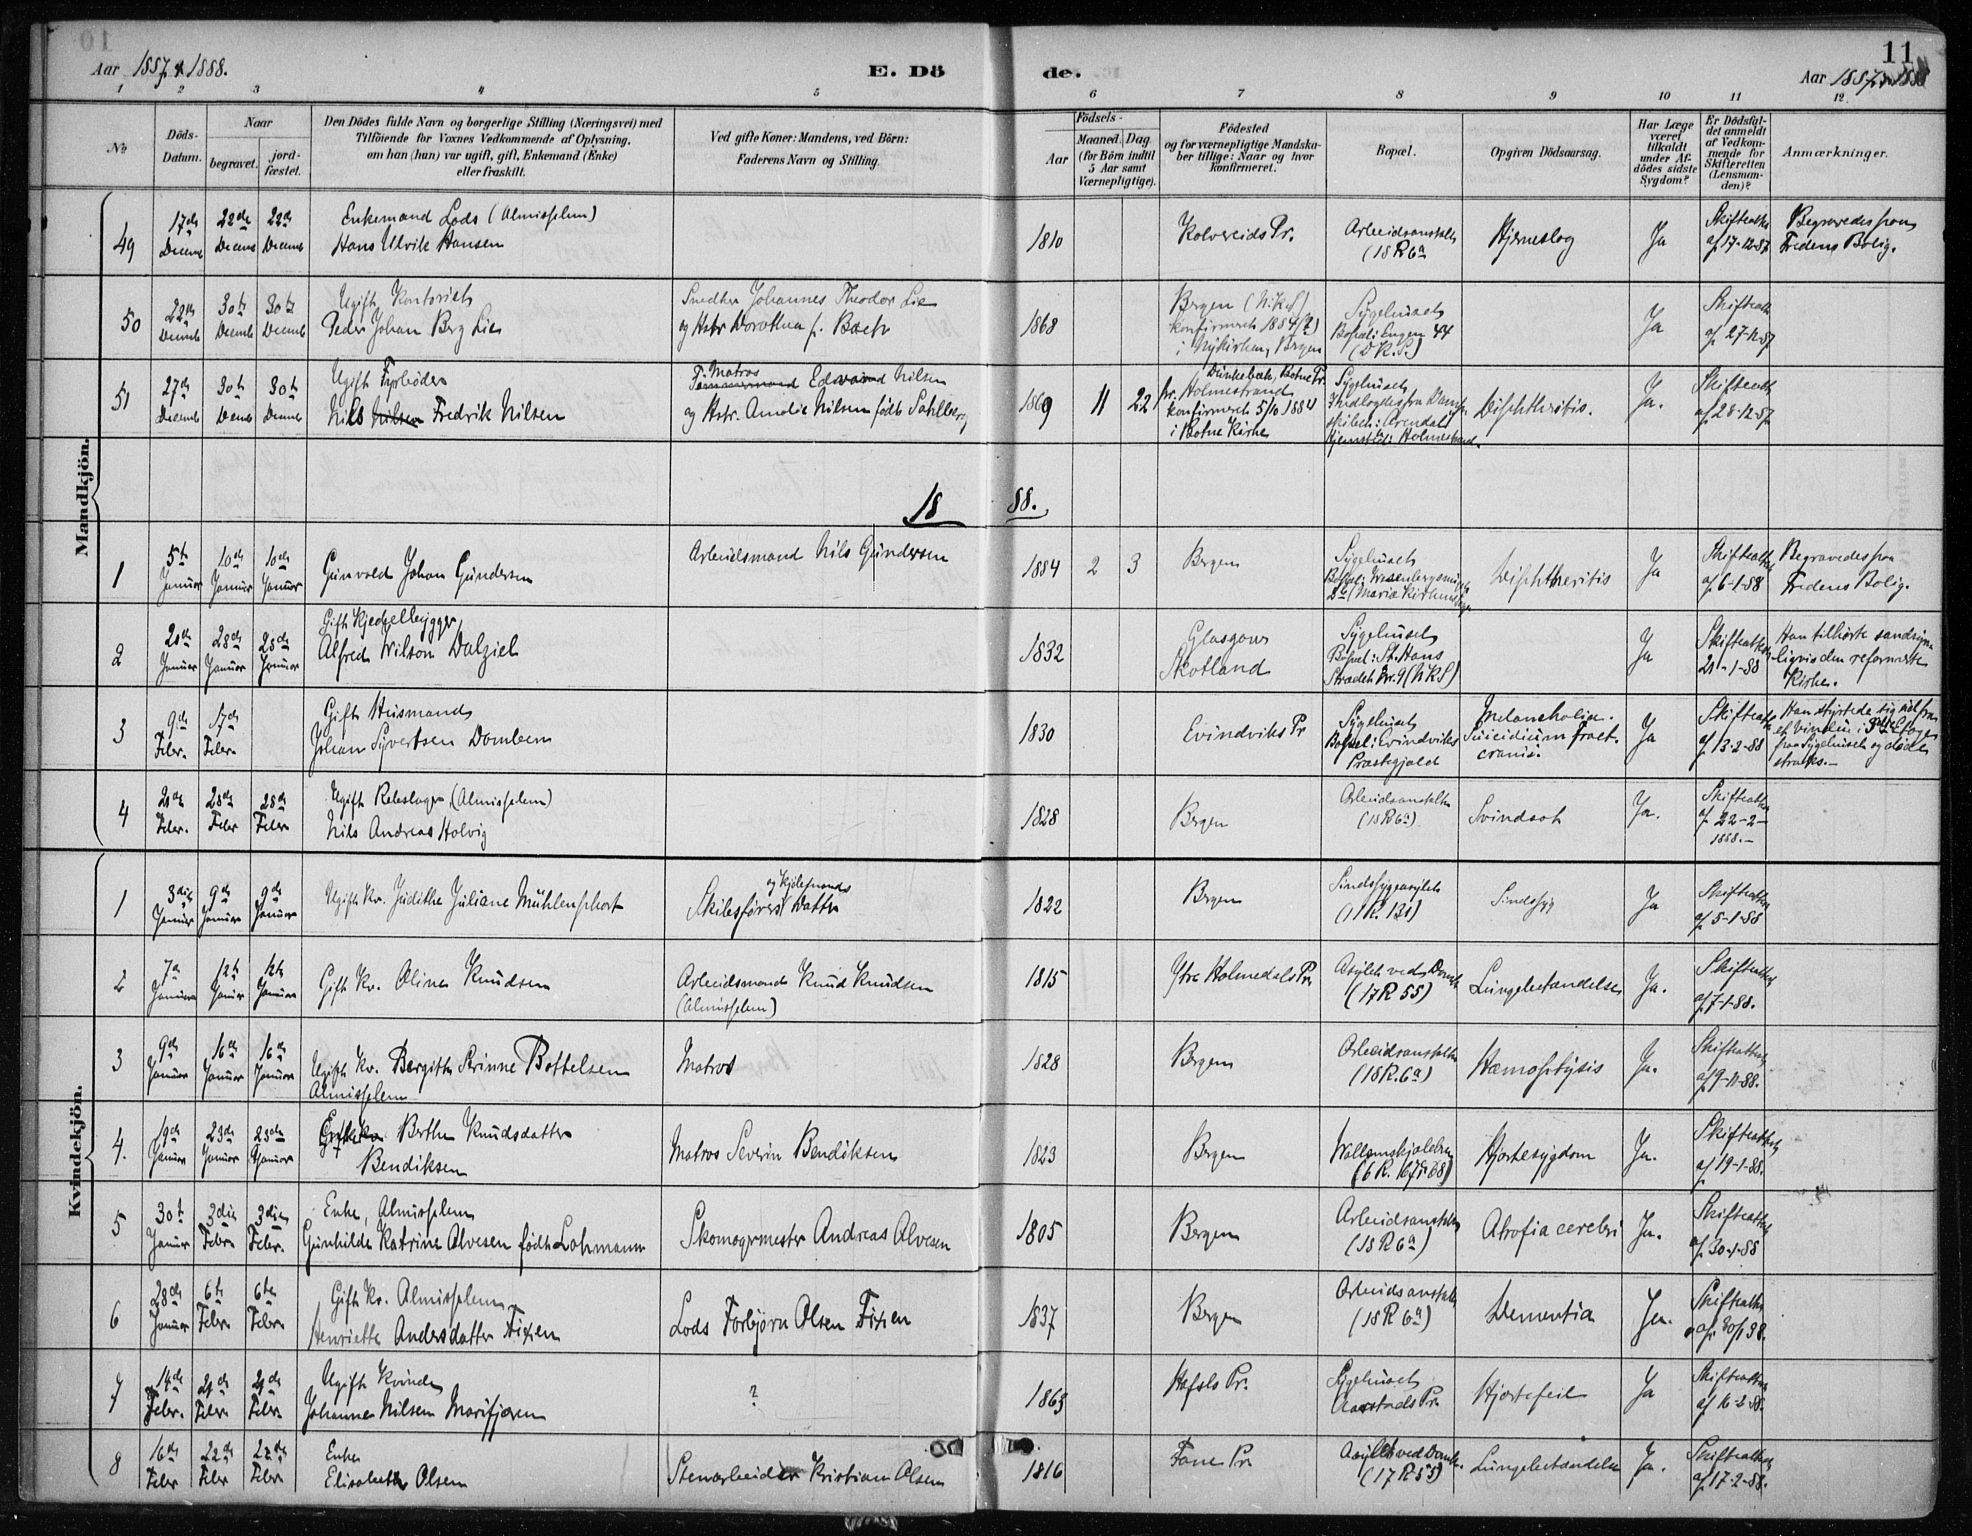 Aar 1887 & 1888.
E. Dö
de.
11
Aar 1887 & 1888
1 2 3 4 5 6 7 8 9 10 11 12
No
Döds-Datum.
Naar
begravet.
jord-fæstet.
Den Dödes fulde Navn og borgerlige Stilling (Næringsvei) med
Tilföiende for Voxnes Vedkommende af Oplysning,
om han (hun) var ugift, gift, Enkemand (Enke)
eller fraskilt.
Ved gifte Koner: Mandens, ved Börn:
Faderens Navn og Stilling.
Födsels-
Aar
Maaned. Dag
(for Börn indtil
5 Aar samt
Værnepligtige).
Födested
og for værnepligtige Mandska-
ber tillige: Naar og hvor
konfirmeret.
Bopæl.
Opgiven Dödsaarsag.
Har Læge
været
tilkaldt
under Af-
dödes sidste
Sygdom?
Er Dödsfal-
det anmeldt
af Vedkom-
mende for
Skifteretten
(Lensman-
den)?
Anmærkninger.
Mandkjön.
49 17de Decemb 22de Decemb 22de Decemb Enkemand Lods (Almisselem) Hans Ulvik Hansen 1810 Kolvereids Pr. Arbeidsanstalten (18 R 6a Hjerneslag Ja Skifteatt. af 17-12-87 Begravedes fra Fredens Bolig.
50 22de Decemb 30te Decemb 30te Decemb Ugift Kontorist Peder Johan Berg Lie Snedker Johannes Theodor Lie og Hstr Dorothea f. Bach 1868 Bergen (N.K.S) konfirmeret 1884 (?) i Nykirken, Bergen Sygehuset Bopæl: Engen 44 (D.K.S.) Ja Skifteatt. af 27-12-87
51 27de Decemb 30te Decemb 30te Decemb Ugift Fyrböder Nils Nilsen Fredrik Nilsen Matros Tømmermand Edvard Nilsen og Hstr. Amelie Nilsen født Sahlberg 1869 11 22 Dunkebæk, Botne Pr. nr. Holmestrand konfirmeret 5/10 1884 i Botne Kirke Sygehuset Indlagdes fra Damp- skibet: Arendal Hjemsted: Holmestrand. Diphtheritis. Ja. Skifteatt. af 28-12-87
18 88.
1 5te Januar 10de Januar 10de Januar Gunvald Johan Gundersen Arbeidsmand Nils Gundersen 1884 2 3 Bergen Sygehuset Diphtheritis Ja Skifteatt. af 6-1-88 Begravedes fra Fredens Bolig.
2 20de Januar 28de Januar 28de Januar Gift Kjedelbygger Alfred Wilson Dalziel 1832 Glasgow Skotland Sygehuset Bopæl: St. Hans Strædet Nr. 9 (N K S) Ja Skifteatt. 21-1-88 Han tilhørte sandsyn- ligvis den reformerte Kirke.
3 9de Febr. 17de Febr. Gift Husmand Johan Syvertsen Domben 1830 Evindviks Pr Sygehuset Bopæl: Evindviks Præstegjæld Melancholia. Suicidium fract. cranii. Ja Skifteatt. af 13-2-88 Han styrtede sig ud fra et Vindu i 3die Etage fra Sygehuset og døde straks.
4 21de Febr. 28de Febr 28de Febr Ugift Rebslager (Almisselem) Nils Andreas Holvig 1828 Bergen Arbeidsanstalten (18 R 6a) Svindsot Ja. Skifteatt. af 22-2-1888.
Kvindekjön.
1 3die Januar 9de Januar 9de Januar Ugift Kv. Judithe Juliane Mühlenphort Skibsførers og Kjøbmands Datter 1822 Bergen Sindssygeasylet (11 R. 131) Sindssyg Ja Skifteatt. af 5-1-88
2 7de Januar 12te Januar 12te Januar Gift Kv. Oline Knudsen Arbeidsmand Knud Knudsen (Almisselem) 1815 Ytre Holmedals Pr. Asylet ved Domk. (17 R 55) Lungebetændelse Ja. Skifteatt. af 7-1-88.
3 9de Januar 16de Januar 16de Januar Ugift Kv. Bergitte Serinne Bottelsen Almisselem Matros 1828 Bergen Arbeidsanstalten (18 R. 6a) Hæmoptysis Ja. Skifteatt. af 9-11-88.
4. 19de Januar 23de Januar 23de Januar Gift Kv. Berthe Knudsdatter Bendiksen Matros Severin Bendiksen 1823 Bergen (6 R. 167 & 68) Hjertesygdom Ja. Skifteatt. af 19-1-88.
5 30te Januar 3die Febr. 3die Febr. Enke, Almisselem Gunhilde Katrine Alvesen født Lohmann Skomagermester Andreas Alvesen 1805 Bergen Arbeidsanstalten (18 R 6a) Atrofia cerebri Ja. Skifteatt. af 30-1-88
6 28de Januar 6te Febr. 6te Febr. Gift Kv. Almisselem Henriette Andersdatter Fixen Lods Torbjørn Olsen Fixen 1837 Bergen Arbeidsanstalten (18 R 6a) Dementia Ja. Skifteatt. af 30/1 88.
7 14de Febr. 21de Febr. 21de Febr. Ugift Kvinde Johanne Nilsen Marifjæren ? 1863 Hafslo Pr. Sygehuset Aarstads Pr. Hjertefeil Ja Skifteatt. af 16-2-88.
8 16de Febr 22de Febr 22de Febr Enke Elisabeth Olsen Stenarbeider Kristian Olsen 1816 Fane Pr Asylet ved Domk. (17 R 55) Lungebetændelse Ja. Skifteatt. af 17-2-88.